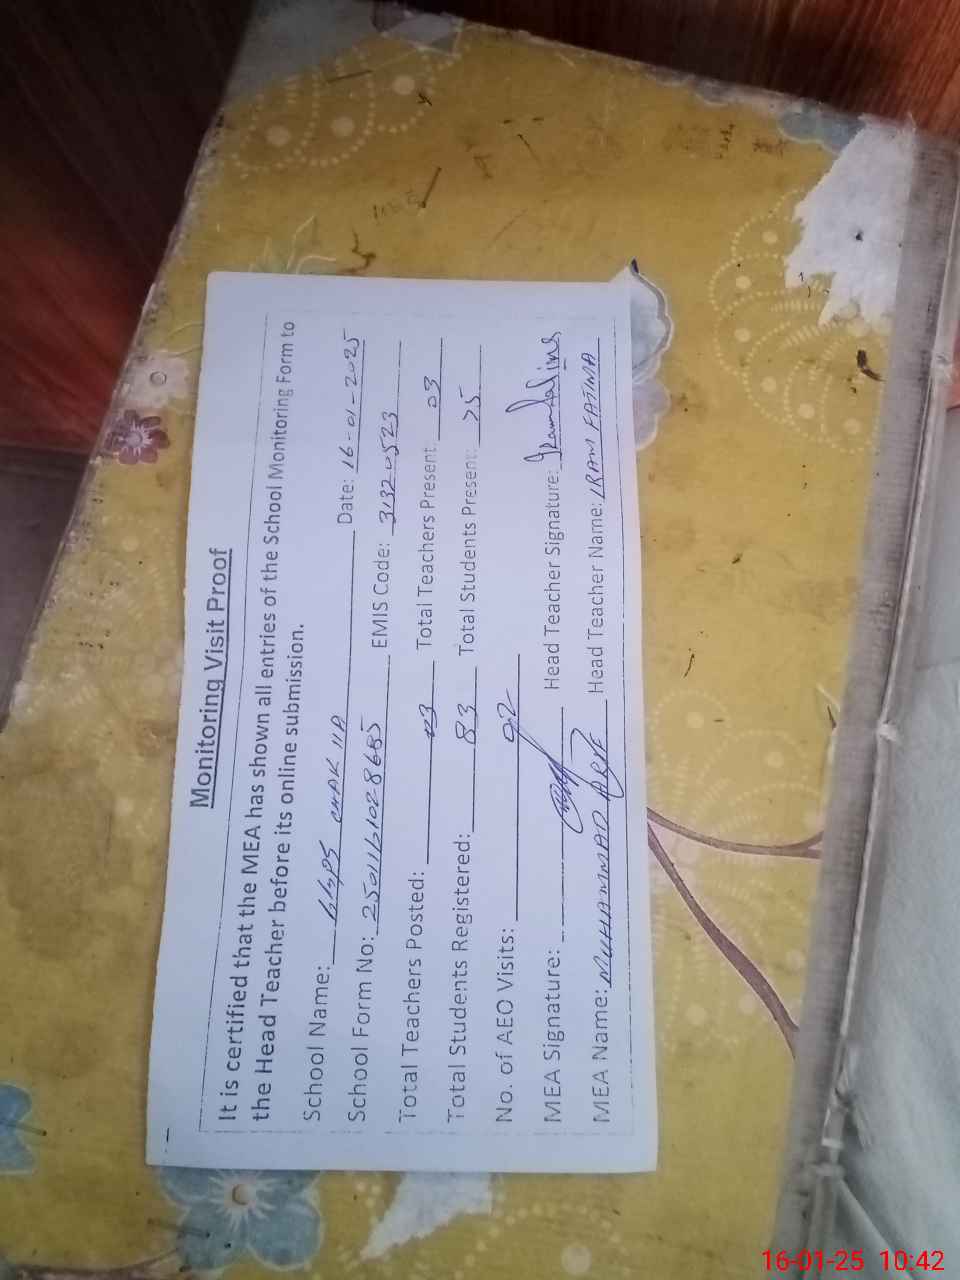 Monitoring Visit Proof
It is certified that the MEA has shown all entries of the School Monitoring Form to
the Head Teacher before its online submission.
School Name: GGPS CHAK 11A Date: 16-01-2025
School Form No: 25011161028685 EMIS Code: 31320523
Total Teachers Posted: 03 Total Teachers Present: 03
Total Students Registered: 83 Total Students Present: 75
No. of AEO Visits: 02
MEA Signature: Head Teacher Signature:
MEA Name: MUHAMMAD Head Teacher Name: IRAM FATIMA
16-01-25 10:42